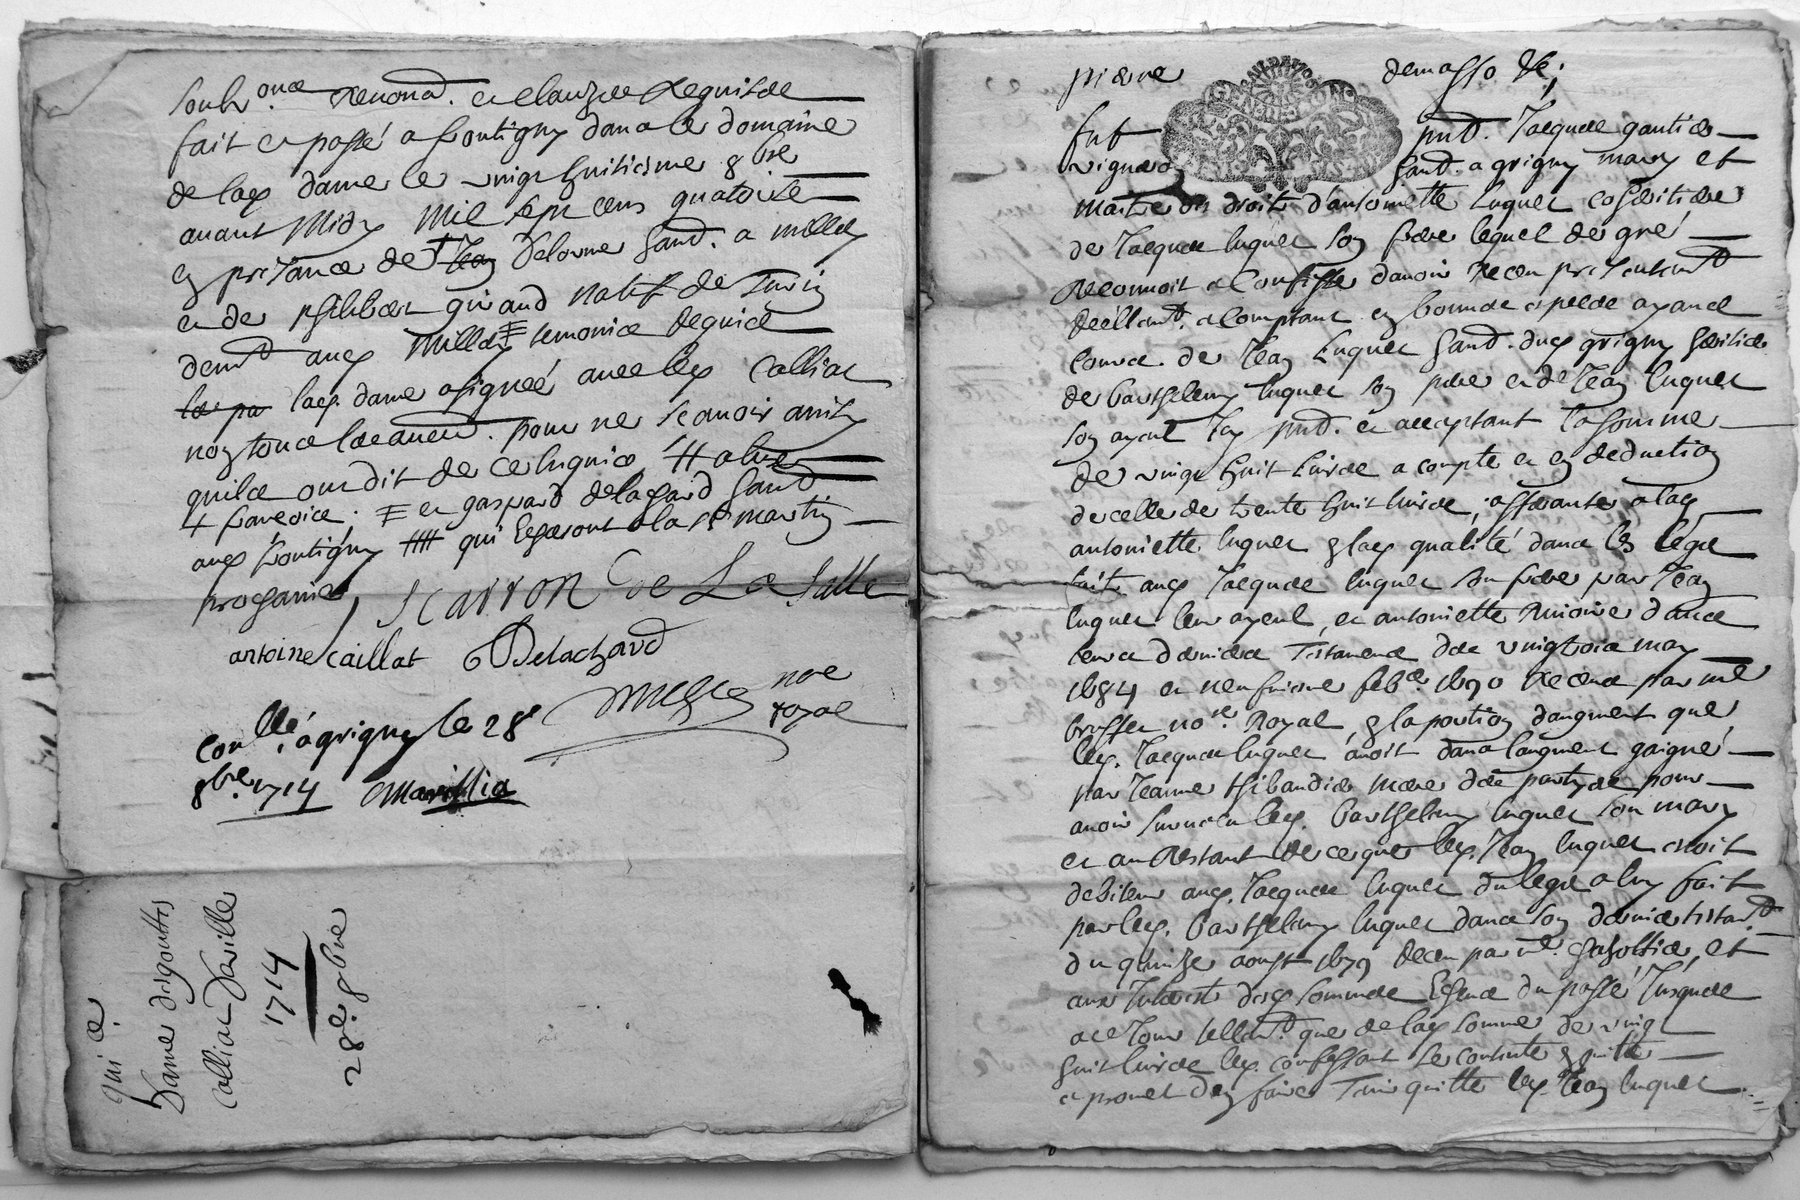 fait et passé a frontigny dans le domaine
de lad dame le vingt huitiesme 8bre
avant Midy Mil sept cens quatorze
en presance de Jean Delorme habt. a millery
et de philibert giraud natif de
demt aud Millery temoins requis
lad. dame a signée avec led Calliat
non tous pour ne scavoir
qu'ils ont dit de ce
francois ; et gaspard delachard habt
aud frontigny qui a la st martin
prochaine
Scarron De La Salle
antoine Caillat GDelachard
nre
royal
con.llé a grigny le 28e
8bre. 1714 Marillia
quice.
Dame desgouttes
Calliat Darville
1714
28e 8bre
pierre
fut pnt. Jacques gautier
vigneron habt. a grigny mary et
maitre des droits d'antoinette luquet cohéritiere
de Jacques luquet son frere lequel de gré
reconnoit et confesse d'avoir receu presentemt
reellemt. et comptant en bonnes especes ayans
cours de Jean luquet habt. dud grigny héritier
de barthelemy luquet son pere et de Jean luquet
son ayeul icy pnt. et acceptant la somme
de vingt huit livres a compte et en deduction
de celle de trente huit livres, afferante a lad
antoinette luquet en lad qualité dans les legs
faits aud Jacques luquet son frere par Jean
luquet leur ayeul, et antoinette dans
leurs derniers Testamens des vingtrois may
1684 et neufviesme feb.e 1690 receus par me
no.re Royal, en la portion d'augment que
led. Jacques luquet avoit dans l'augment gaigné
par Jeanne thibaudier mere des partyes pour
avoir survecu led. barthelemy luquet son mary
et au restant de ce que led. Jean luquet estoit
debiteur aud. Jacques luquet du legs a luy fait
par led. barthelemy luquet dans son dernier testamt.
du quinze aoust 1679 receu par me. et
aux interests desd sommes du passé jusques
a ce jour tellemt. que de lad somme de vingt
huit livres led. confessant se contente en quitte
et promet d'en faire tenir quitte led. Jean luquet